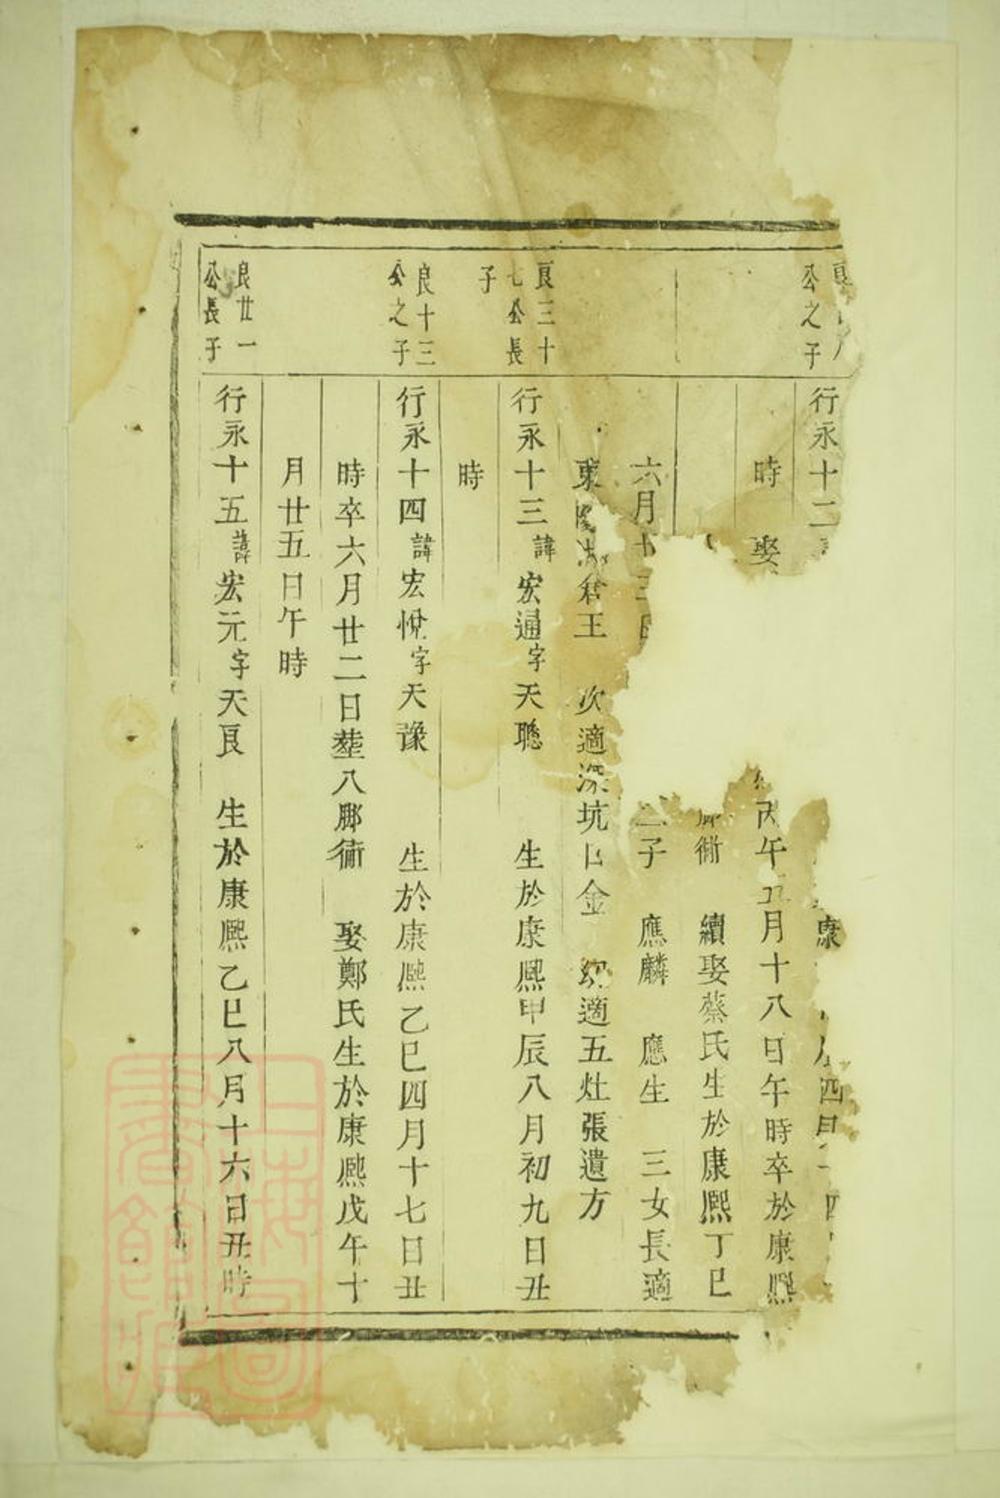 公之子
行永十二
康
四
時 娶
丙午五月十八日午時卒於康熙
續娶蔡氏生於康熙丁巳
六月十三日
子 應麟 應生 三女長適
東
君王 次適深坑 金 幼適五灶張遺方
良三十
七公長
子
行永十三諱宏通字天聰 生於康熙甲辰八月初九日丑
時
良十三
公之子
行永十四諱宏悅字天豫 生於康熙乙巳四月十七日丑
時卒六月廿二日塟八腳衕 娶鄭氏生於康熙戊午十
月廿五日午時
良廿一
公長子
行永十五諱宏元字天良 生於康熙乙巳八月十六日丑時
上海圖
書館藏